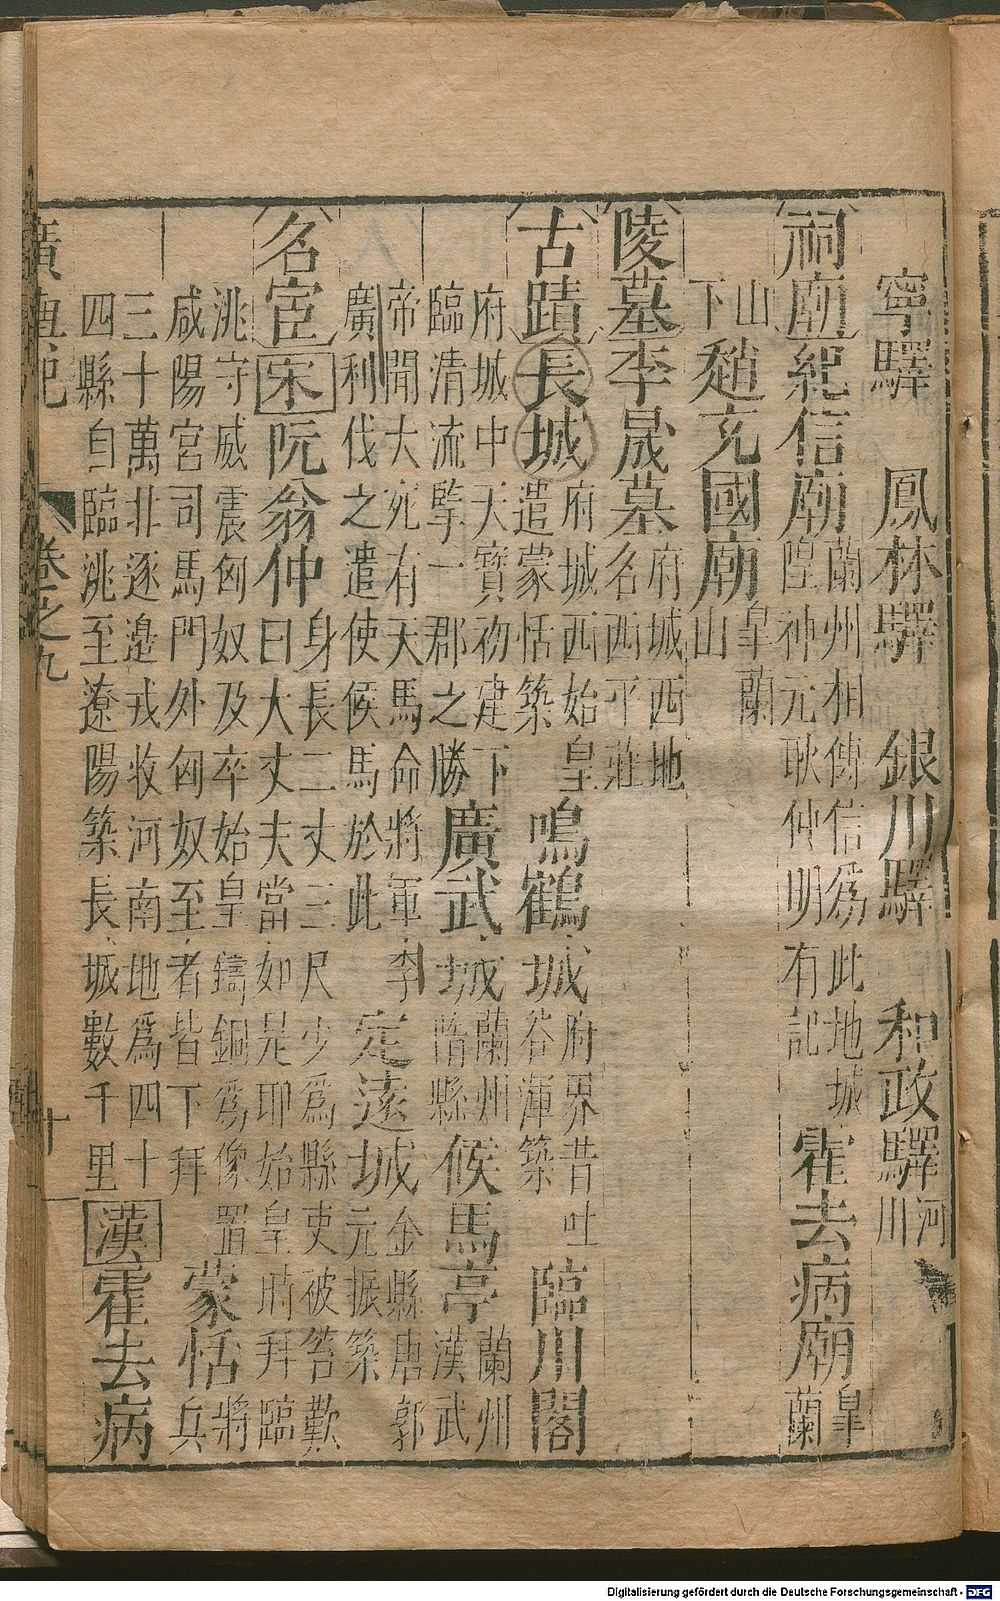 寧驛 鳳林驛 銀川驛 和政驛河川
祠廟紀信廟蘭州相傳信爲此地城隍神元耿仲明有記霍去病廟皐蘭
山下趙充國廟皐蘭山
陵墓李晟墓府城西地名西平莊
古蹟長城府城西始皇遣蒙恬築鳴鶴城府界昔吐谷渾築臨川閣
府城中天寶初建下臨清流擥一郡之勝廣武城蘭州階縣候馬亭蘭州漢武
帝聞大宛有天馬命將軍李廣利伐之遣使候馬於此定遠城金縣唐郭元振築
名宦宋阮翁仲身長二丈三尺少爲縣吏被笞歎曰大丈夫當如是耶始皇時拜臨
洮守威震匈奴及卒始皇鑄銅爲像置咸陽宮司馬門外匈奴至者皆下拜蒙恬將兵
三十萬北逐邊戎收河南地爲四十四縣自臨洮至遼陽築長城數千里漢霍去病
廣輿記 卷之九 十
Digitalisierung gefördert durch die Deutsche Forschungsgemeinschaft - DFG